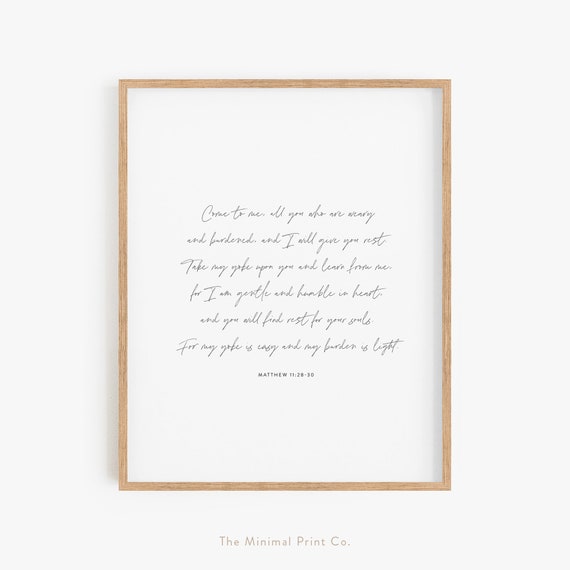 Come to me, all you who are weary
and burdened, and I will give you rest.
Take my yoke upon you and learn from me,
for I am gentle and humble in heart,
and you will find rest for your souls.
For my yoke is easy and my burden is light.
MATTHEW 11:28-30
The Minimal Print Co.